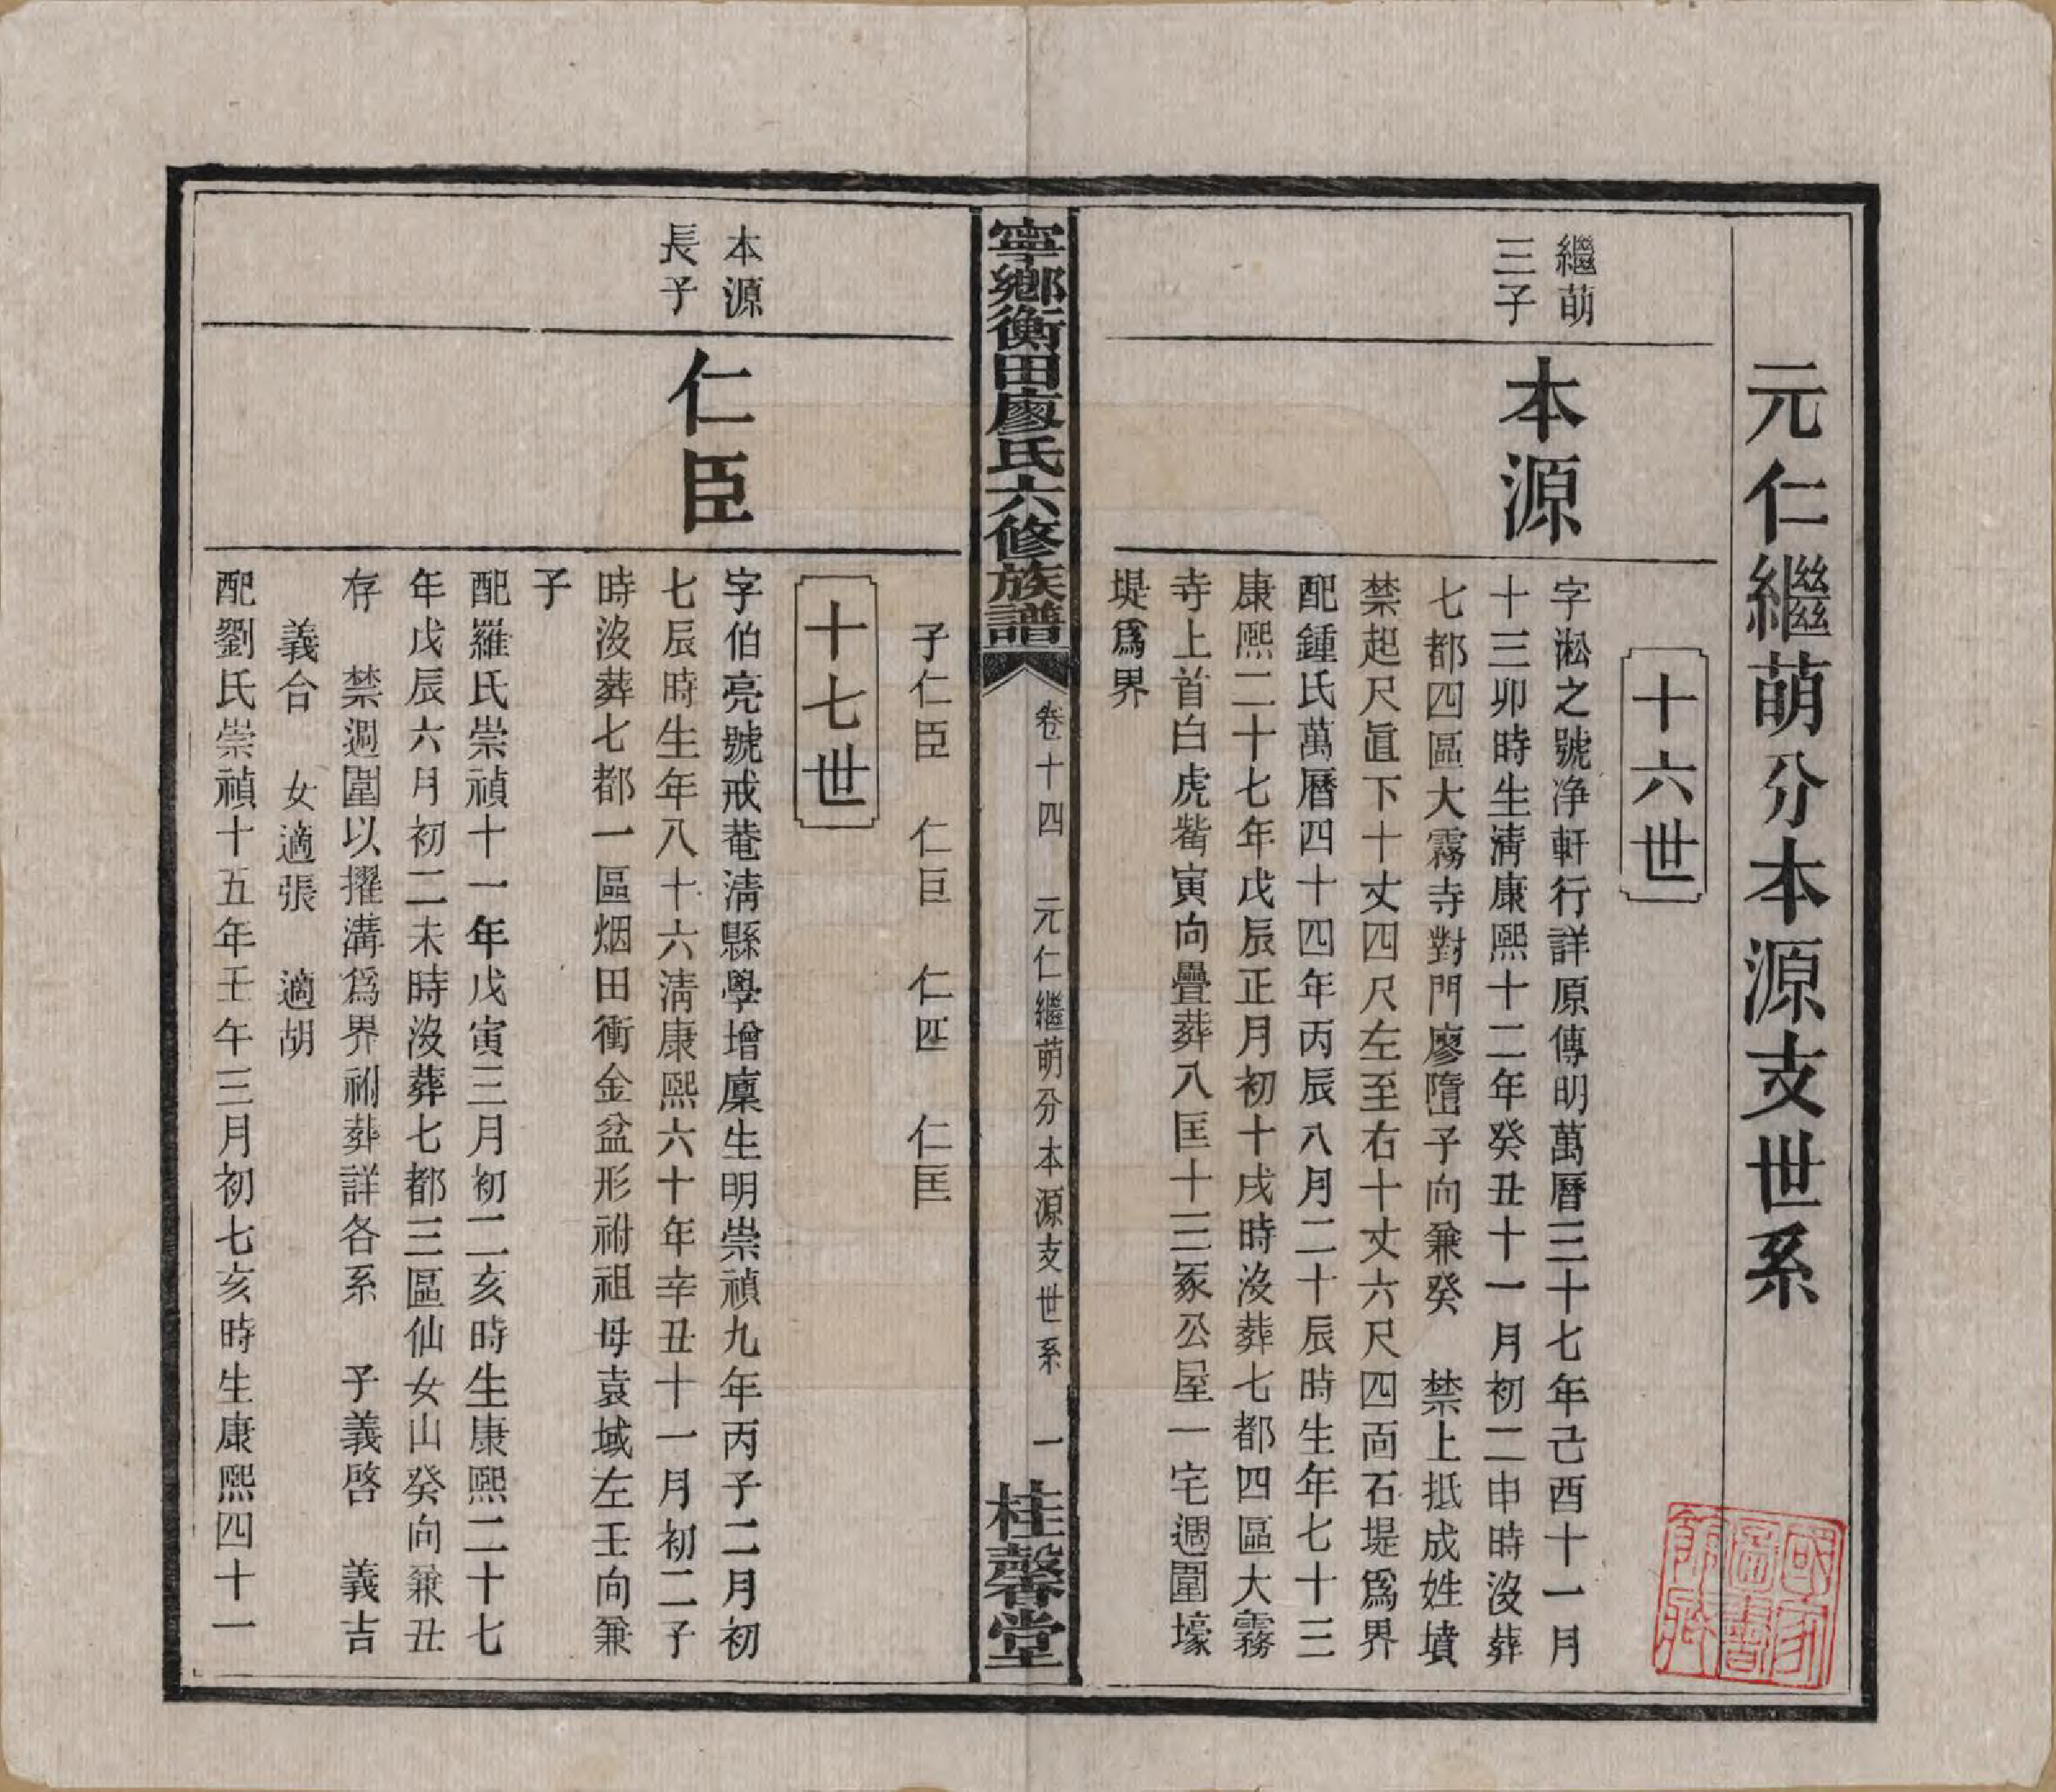 元仁繼萌分本源支世系
十六世
繼萌
三子
本源
字淞之號净軒行詳原傳明萬曆三十七年己酉十一月
十三卯時生清康熙十二年癸丑十一月初二申時沒葬
七都四區大霧寺對門廖䧟子向兼癸　禁上抵成姓墳
禁起尺眞下十丈四尺左至右十丈六尺四面石堤爲界
配鍾氏萬曆四十四年丙辰八月二十辰時生年七十三
康熙二十七年戊辰正月初十戌時沒葬七都四區大霧
寺上首白虎觜寅向疊葬八匡十三冢公屋一宅週圍壕
堤爲界
寧鄉衡田廖氏六修族譜
卷十四　元仁繼萌分本源支世系　一
桂馨堂
子仁臣　仁巨　仁匹　仁匡
十七世
本源
長子
仁臣
字伯亮號戒菴清縣學增廩生明崇禎九年丙子二月初
七辰時生年八十六清康熙六十年辛丑十一月初二子
時沒葬七都一區烟田衝金盆形祔祖母袁域左壬向兼
子
配羅氏崇禎十一年戊寅三月初二亥時生康熙二十七
年戊辰六月初二未時沒葬七都三區仙女山癸向兼丑
存　禁週圍以擢溝爲界祔葬詳各系　子義啓　義吉
義合　女適張　適胡
配劉氏崇禎十五年壬午三月初七亥時生康熙四十一
國家圖書館藏